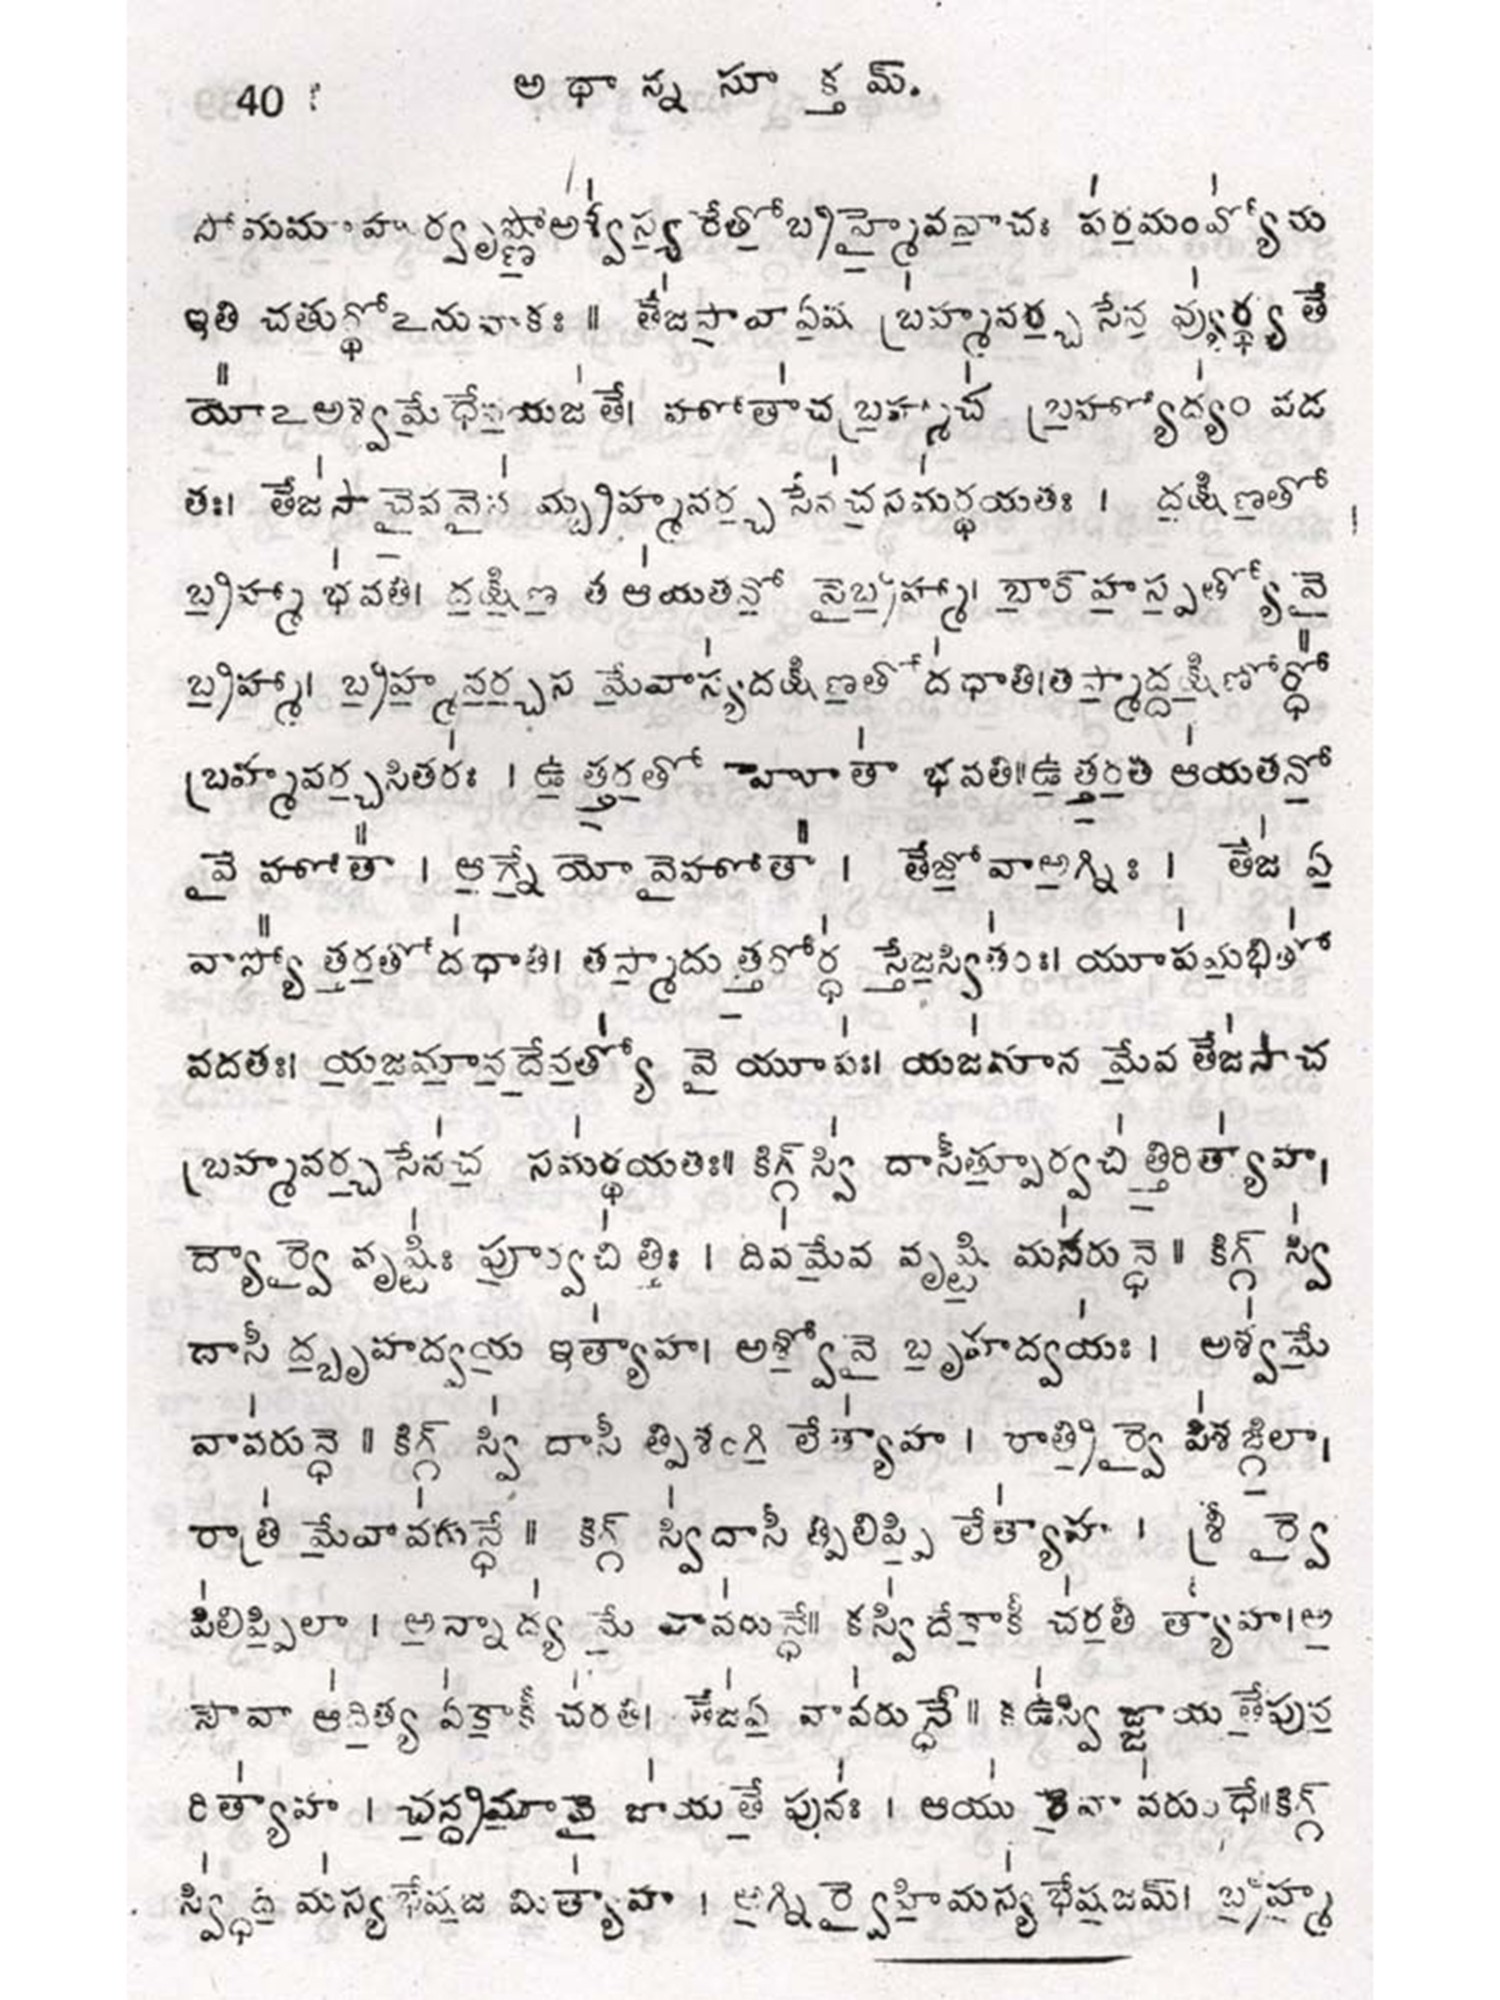 40
అథాన్న సూక్తమ్.
సోమమాహుర్వృష్ణోఅశ్వస్య రేతోబ్రహ్మైవవాచః పరమంవ్యోమ
ఇతి చతుర్థోఽనువాకః ॥ తేజసావాఏష బ్రహ్మవర్చసేన వ్యృర్ధ్యతే
యోఽఅశ్వమేధేనయజతే। హోతాచబ్రహ్మాచ బ్రహ్మోద్యం వద
తః। తేజసాచైవనైన మ్బ్రహ్మవర్చసేనచసమర్ధయతః । దక్షిణతో
బ్రహ్మా భవతి। దక్షిణ త ఆయతనో వైబ్రహ్మా। బార్‌హస్పత్యోవై
బ్రహ్మా। బ్రహ్మవర్చస మేవాస్యదక్షిణతో దధాతి।తస్మాద్దక్షిణోర్ధో
బ్రహ్మవర్చసితరః । ఉత్తరతో హోతా భవతి॥ఉత్తరతి ఆయతనో
వై హోతా । ఆగ్నేయో వైహోతా । తేజోవాఅగ్నిః । తేజ ఏ
వాస్యోత్తరతోదధాతి। తస్మాదుత్తరోర్ధ స్తేజస్వితరః। యూపమభితో
వదతః। యజమానదేవత్యో వై యూపః। యజమాన మేవ తేజసాచ
బ్రహ్మవర్చసేనచ సమర్ధయతః॥ కిగ్గ్‌స్వి దాసీత్పూర్వచిత్తిరిత్యాహ।
ద్యౌర్వై వృష్టిః పూర్వచిత్తిః । దివమేవ వృష్టి మవరున్ధె ॥ కిగ్గ్ స్వి
దాసీ ద్బృహద్వయ ఇత్యాహ। అశ్వోవై బృహద్వయః । అశ్వమే
వావరున్ధె ॥ కిగ్గ్ స్వి దాసీ త్పిశంగి లేత్యాహ । రాత్రిర్వై పిశఙ్గిలా।
రాత్రి మేవావరున్ధే ॥ కిగ్గ్ స్విదాసీ త్పిలిప్పి లేత్యాహ । శ్రీ ర్వై
పిలిప్పిలా । అన్నాద్య మే వావరున్ధే॥ కస్విదేకాకీ చరతీ త్యాహ।అ
సౌవా ఆదిత్య ఏకాకీ చరతి। తేజఏ వావరున్ధే॥ కఉస్వి జ్జాయతేపున
రిత్యాహ । చన్ద్రమావై జాయతే పునః । ఆయు రేవా వరుంధే॥కిగ్గ్
స్విద్ధి మస్యభేషజ మిత్యాహ । అగ్నిర్వైహిమస్యభేషజమ్। బ్రహ్మ